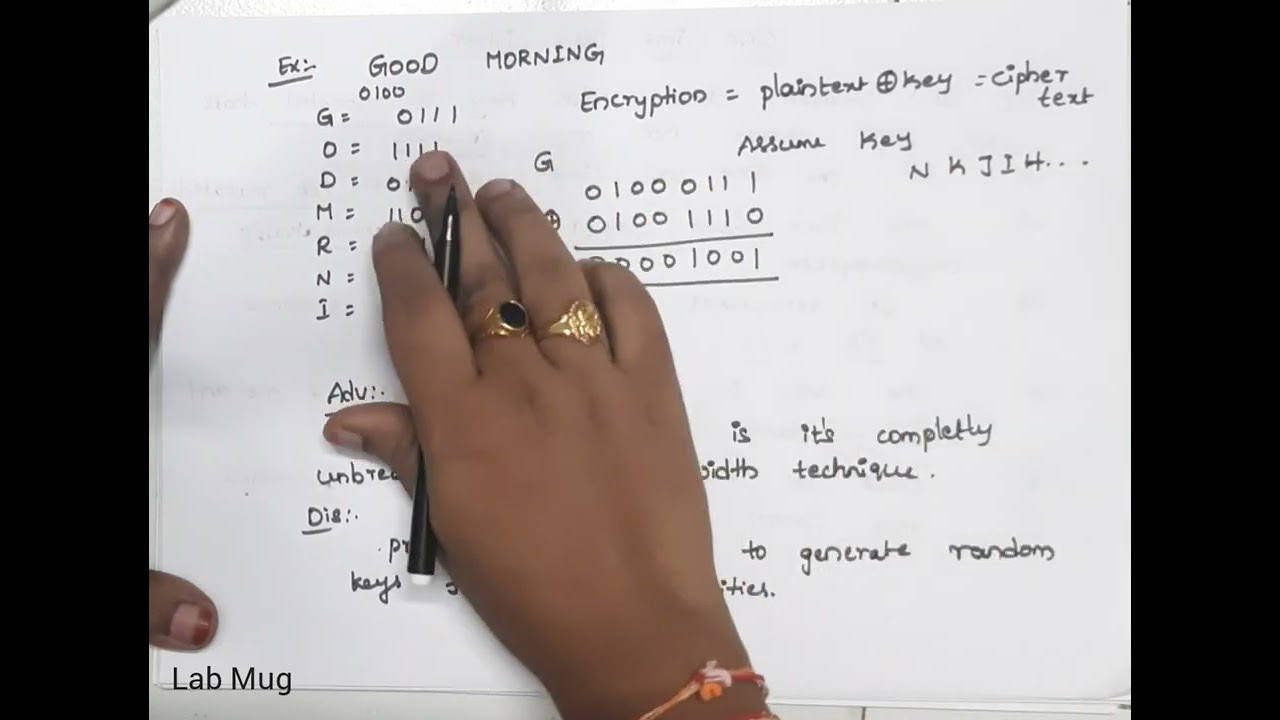 Ex:- GOOD MORNING
0100
G = 0111
O = 1111
D =
M = 110
R =
N =
I =
Encryption = plaintext ⊕ key = cipher
text
Assume key
N K J I H...
G
01000111
⊕ 01001110
00001001
Adv:-
is it's completly
technique.
Dis:-
to generate random
keys